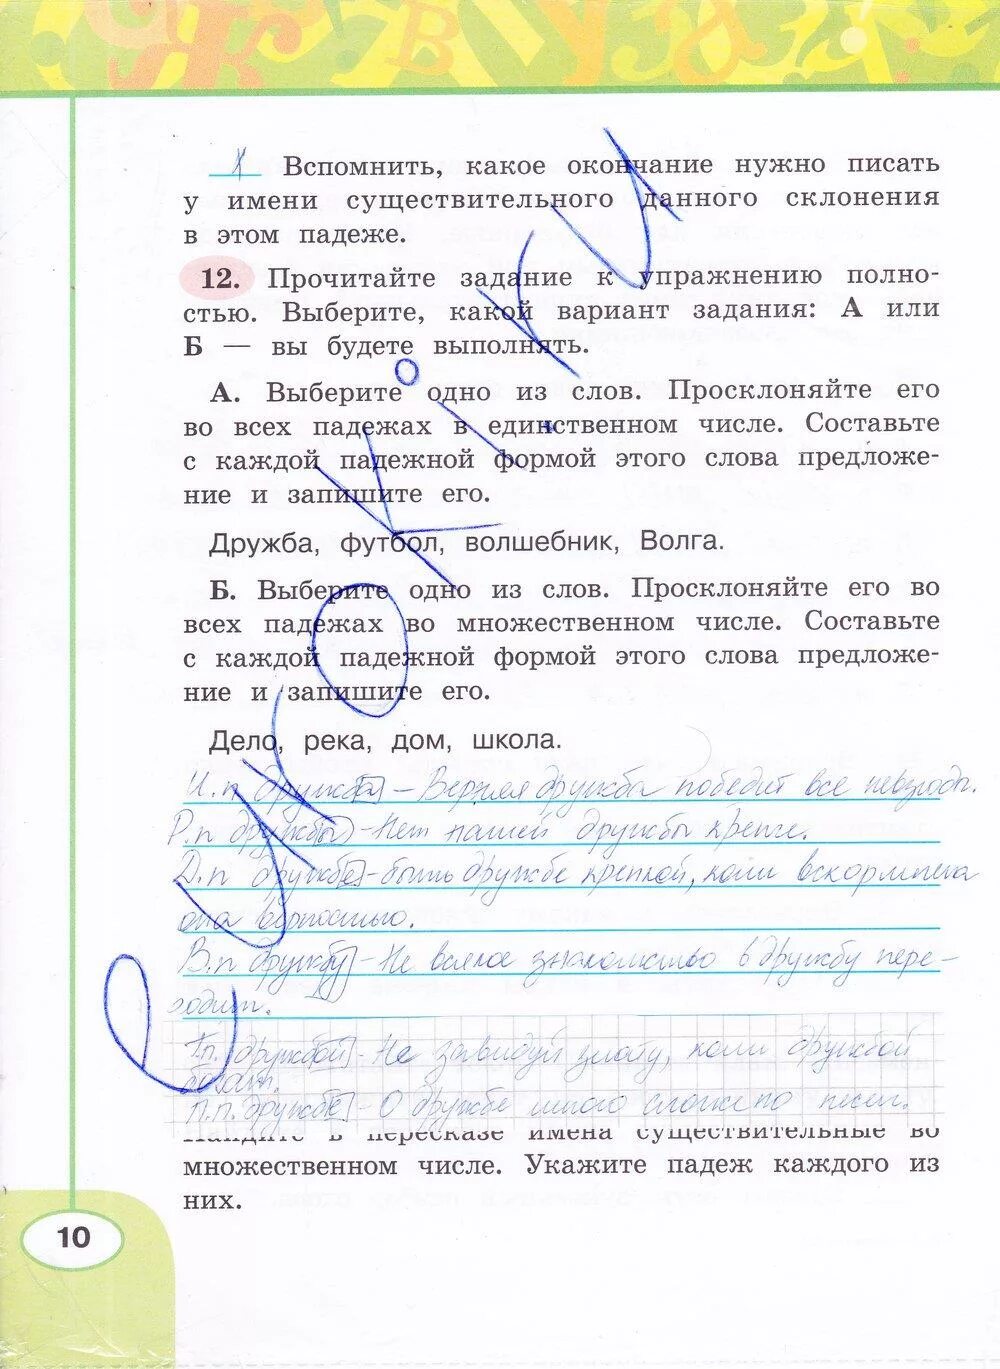 Вспомнить, какое окончание нужно писать
у имени существительного данного склонения
в этом падеже.
12. Прочитайте задание к упражнению полно-
стью. Выберите, какой вариант задания: А или
Б — вы будете выполнять.
А. Выберите одно из слов. Просклоняйте его
во всех падежах в единственном числе. Составьте
с каждой падежной формой этого слова предложе-
ние и запишите его.
Дружба, футбол, волшебник, Волга.
Б. Выберите одно из слов. Просклоняйте его во
всех падежах во множественном числе. Составьте
с каждой падежной формой этого слова предложе-
ние и запишите его.
Дело, река, дом, школа.
И.п дружба – Верная дружба победит все невзгоды.
Р.п дружбы – Нет нашей дружбы крепче.
Д.п дружбе – быть дружбе крепкой, коли вскормлена
она верностью.
В.п дружбу – Не всякое знакомство в дружбу пере-
ходит.
Т.п. дружбой – Не завидуй злату, коли дружбой
богат.
П.п. дружбе – О дружбе много сложено песен.
Найдите в пересказе имена существительные во
множественном числе. Укажите падеж каждого из
них.
10